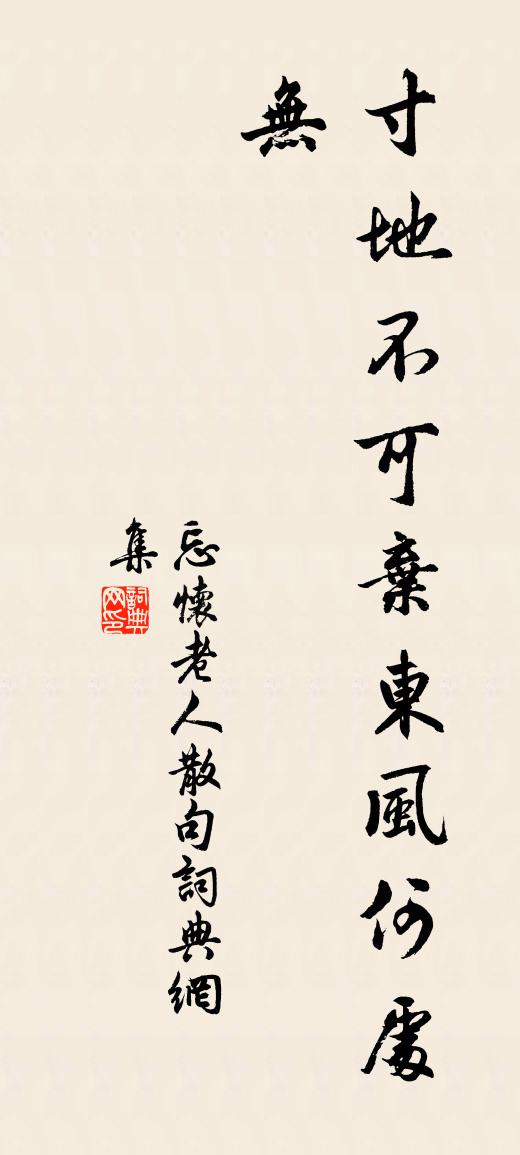 寸地不可棄東風何處
無
忘懷老人散句詞典網
集
詞典
网印